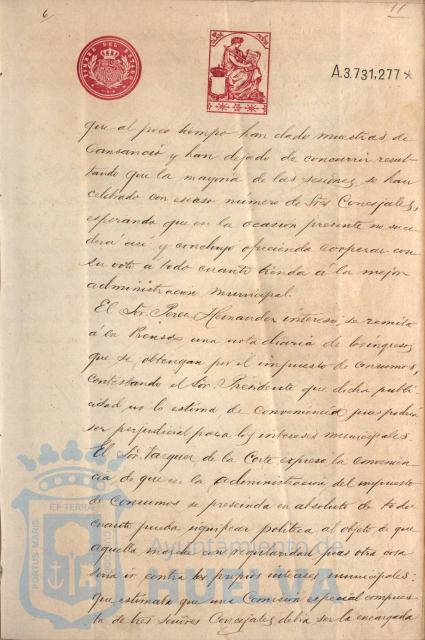 6 11
TIMBRE DEL ESTADO
A.3.731.277*
que al poco tiempo han dado muestras de
Cansancio y han dejado de concurrir resul-
tando que la mayoria de las sesiones se han
celebrado con escaso número de Sres Concejales,
esperando que en la ocasion presente no suce-
derá asi y concluyó ofreciendo cooperar con
su voto á todo cuanto tienda á la mejor
administracion municipal.
El Sr. Perez Hernandez interesó se remita
á la Prensa una nota diaria de los ingresos
que se obtengan por el impuesto de Consumos,
contestando el Sor. Presidente que dicha publi-
cidad no lo estima de Conveniencia pues podria
ser perjudicial para los intereses municipales
El Sr. Vazquez de la Corte expresó la convenien-
cia de que en la administracion del impuesto
de Consumos se prescinda en absoluto de todo
cuanto pueda significar politica al objeto de que
aquella marche con regularidad pues otra cosa
seria ir contra los propios intereses municipales:
que estimaba que una Comision especial compues-
ta de tres señores Concejales debia ser la encargada
PORTUS MARIS ET TERRAE CUSTODIA
Ayuntamiento de
HUELVA